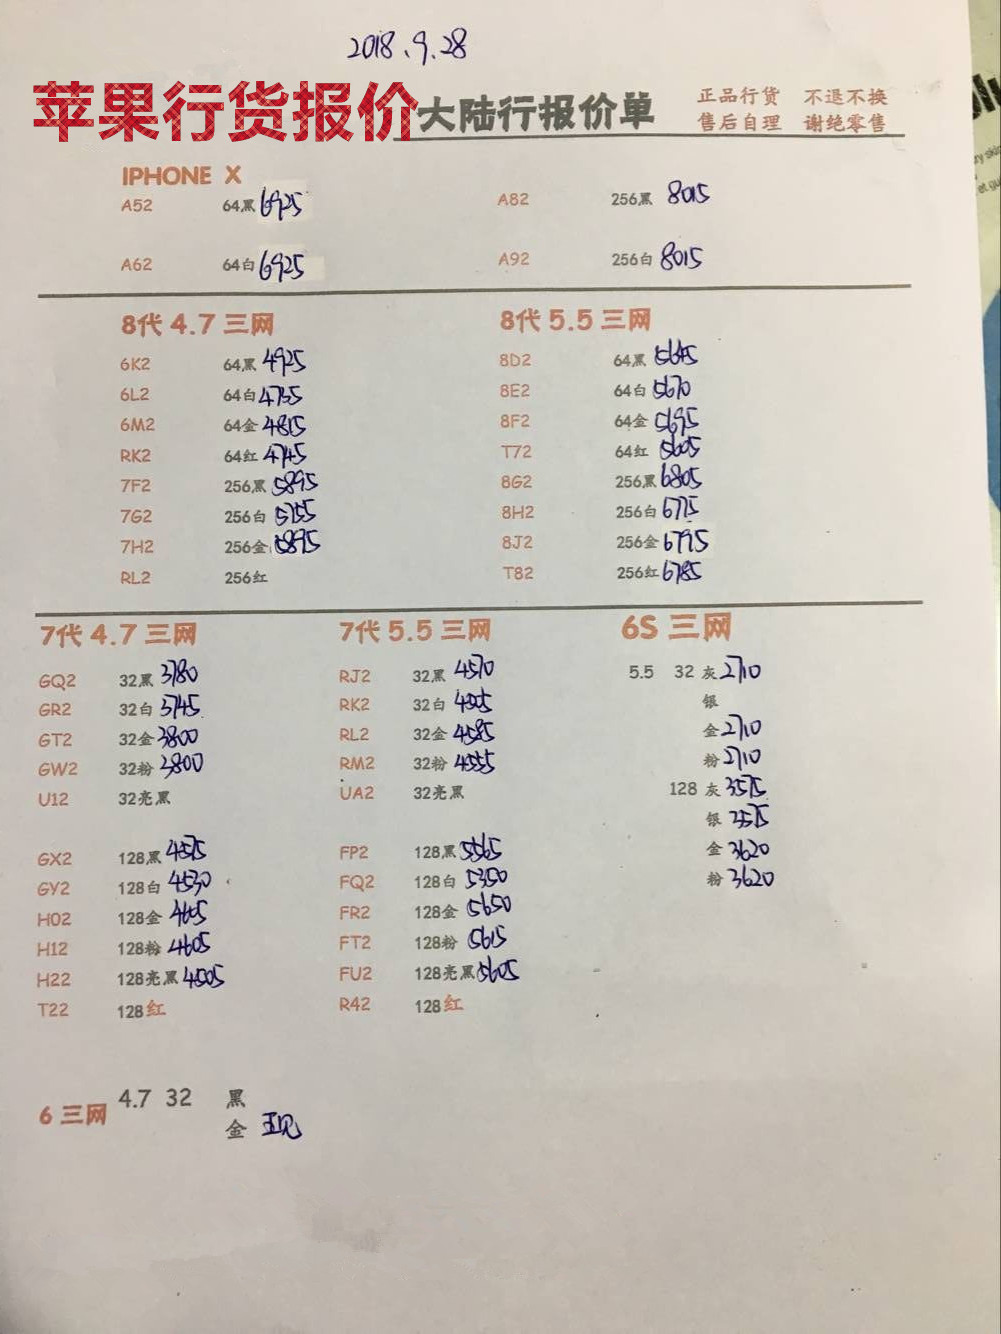 2018.9.28
苹果行货报价 大陆行报价单 正品行货 不退不换
售后自理 谢绝零售
IPHONE X
A52 64黑 6925 A82 256黑 8015
A62 64白 6925 A92 256白 8015
8代 4.7 三网 8代 5.5 三网
6K2 64黑 4925 8D2 64黑 5645
6L2 64白 4755 8E2 64白 5670
6M2 64金 4815 8F2 64金 5695
RK2 64红 4745 T72 64红 5605
7F2 256黑 5895 8G2 256黑 6805
7G2 256白 5755 8H2 256白 6775
7H2 256金 5895 8J2 256金 6795
RL2 256红 T82 256红 6785
7代 4.7 三网 7代 5.5 三网 6S 三网
GQ2 32黑 3780 RJ2 32黑 4570 5.5 32 灰 2710
GR2 32白 3745 RK2 32白 银
GT2 32金 3800 RL2 32金 4585 金 2710
GW2 32粉 3800 RM2 32粉 4555 粉 2710
U12 32亮黑 UA2 32亮黑 128 灰 3575
银
GX2 128黑 4575 FP2 128黑 5565 金 3620
GY2 128白 4530 FQ2 128白 5350 粉 3620
H02 128金 FR2 128金 5650
H12 128粉 4605 FT2 128粉 5615
H22 128亮黑 4505 FU2 128亮黑 5605
T22 128红 R42 128红
6 三网 4.7 32 黑
金 现